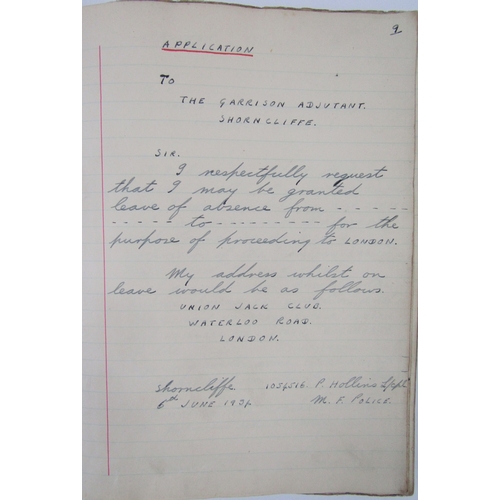 9
APPLICATION
TO
THE GARRISON ADJUTANT.
SHORNCLIFFE.
SIR.
I respectfully request
that I may be granted
leave of absence from - - - - - -
- - - - - - - - to - - - - - - - - for the
purpose of proceeding to LONDON.
My address whilst on
leave would be as follows.
UNION JACK CLUB.
WATERLOO ROAD.
LONDON.
Shorncliffe 1056516. P. Hollins L/Cpl
6th JUNE M. F. POLICE.